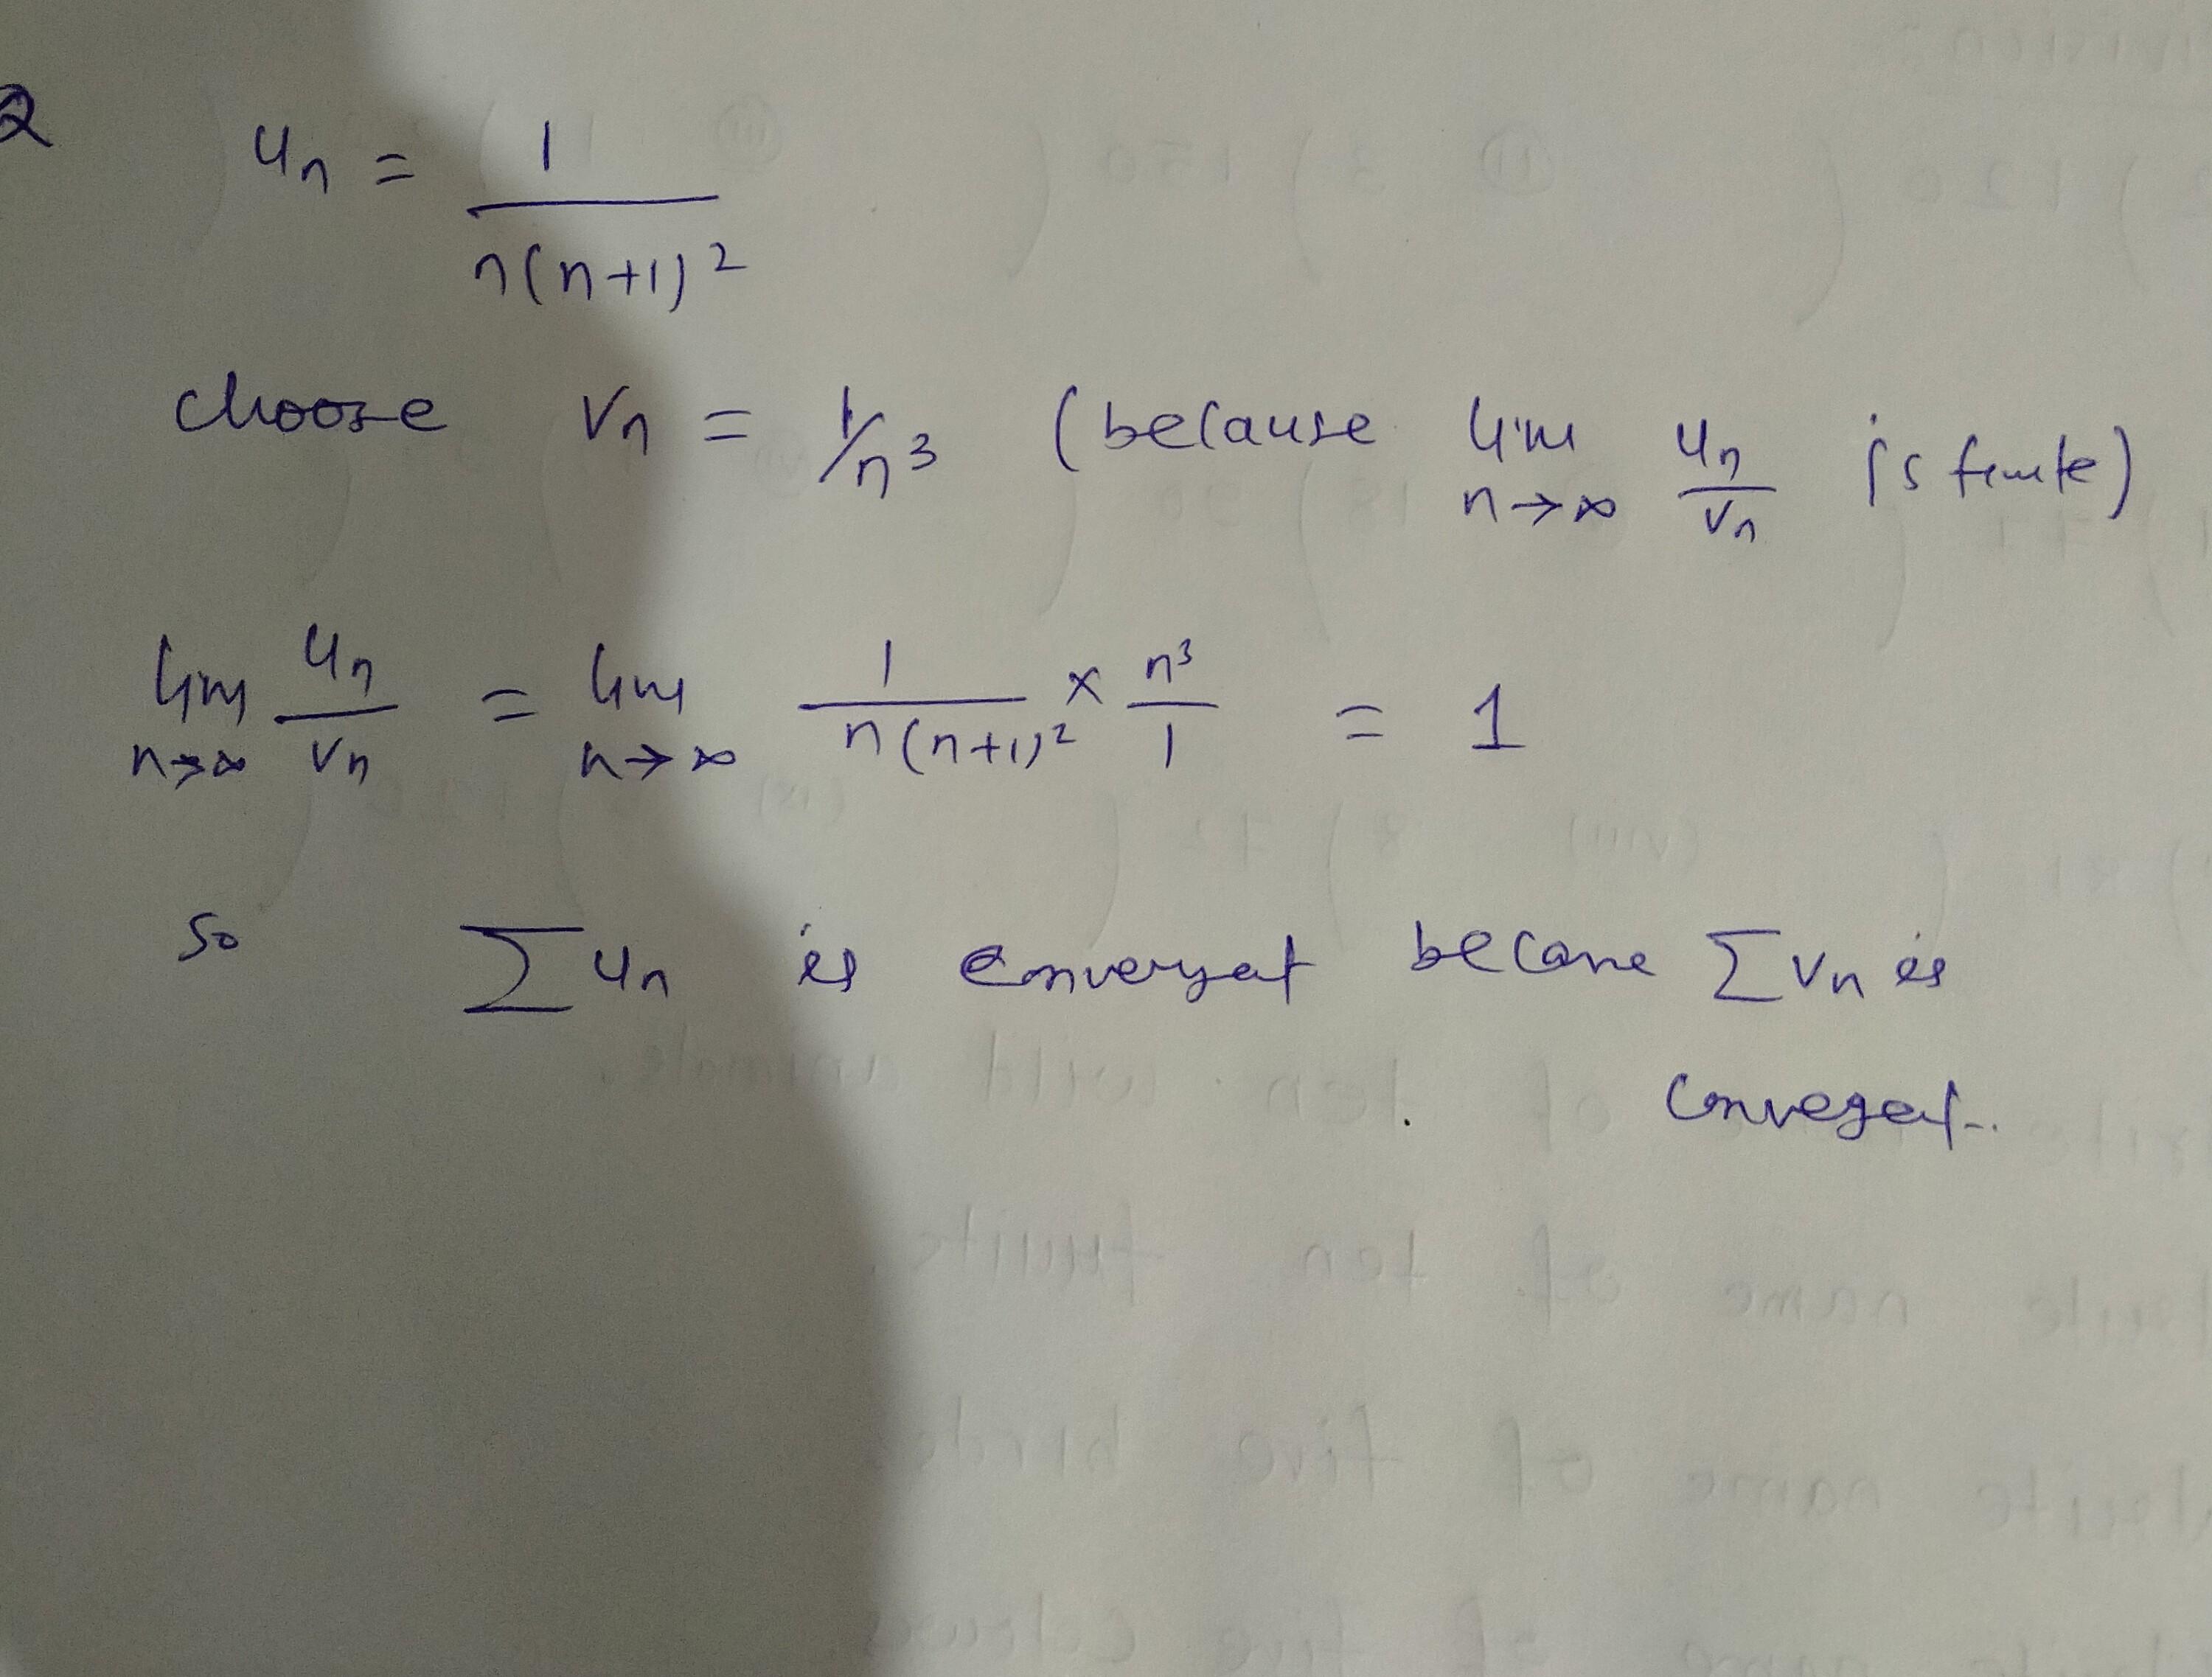 Q un = 1/n(n+1)²
choose vn = 1/n³ (because lim n→∞ un/vn is finite)
lim n→∞ un/vn = lim n→∞ 1/n(n+1)² × n³/1 = 1
so ∑un is convergent because ∑vn is
convergent.